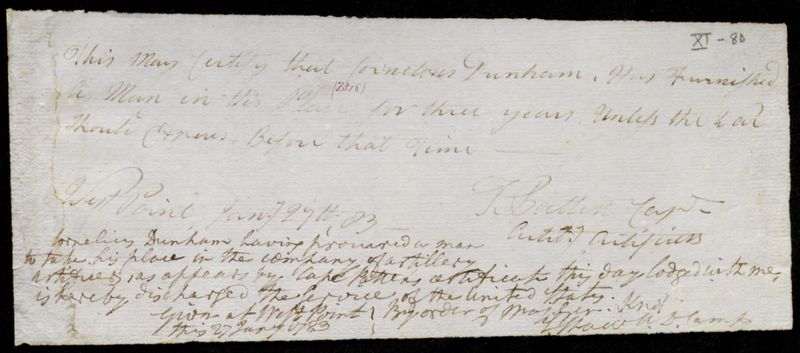 XI - 80
This May Certify that Cornelous Dunham. Has Furnished
A Man in His Place for three years. Unless the War
Should Expire. Before that Time
West Point Jany 27th. 83
T. Patten Capt
Artify Artificers
Cornelius Dunham having procured a man
to take his place in the company of artillery
artificers, as appears by Capt Pattens certificate this day lodged with me,
is hereby discharged the Service of the United States.
Given at West Point
this 27 Jany 1783
By order of Major Genl. Knox
A. D. Camp